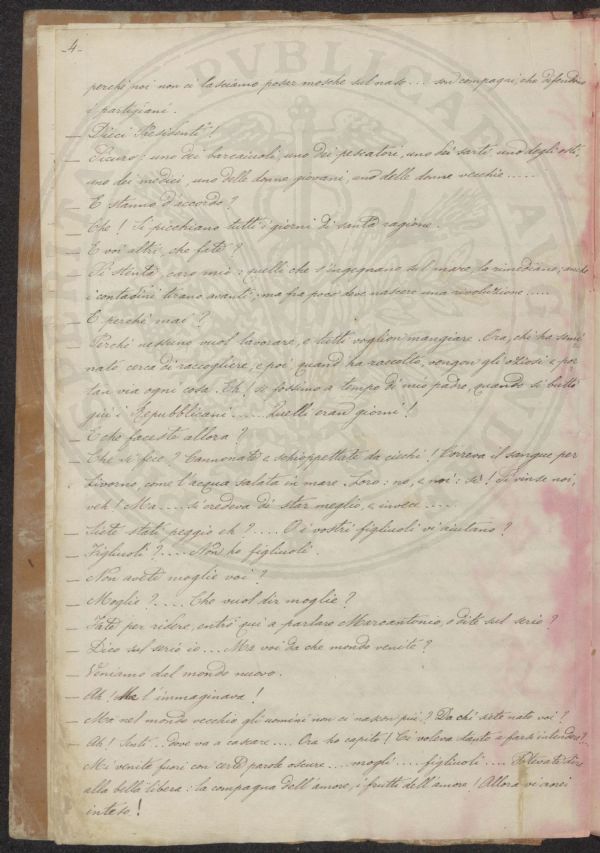 4
perchè noi non ci lasciamo posar mosche sul naso... son compagni, che difendono
i partigiani.
— Dieci Presidenti!
— Sicuro; uno dei barcaiuoli, uno dei pescatori, uno dei sarti, uno degli osti,
uno dei medici, uno delle donne giovani, uno delle donne vecchie.....
— E stanno d'accordo?
— Che! Si picchiano tutti i giorni di santa ragione.
— E voi altri che fate?
— Si stenta, caro mio: quelli che s'ingegnano sul mare, la rimediano; anche
i contadini tirano avanti; ma fra poco deve nascere una rivoluzione....
— E perchè mai?
— Perchè nessuno vuol lavorare, e tutti voglion mangiare. Ora, chi ha semi
nato cerca di raccogliere, e poi quand'ha raccolto, vengon gli oziosi e por
tan via ogni cosa. Eh! se fossimo a tempo di mio padre, quando si buttò
qui i Repubblicani..... Quelli eran giorni!
— E che faceste allora?
— Che si fece? Cannonate e schioppettate da ciechi! Correva il sangue per
Livorno, come l'acqua salata in mare. Loro: no, e noi: sì! Si vinse noi,
veh! Ma.... si credeva di star meglio, e invece.....
— Siete stati peggio eh?.... O i vostri figliuoli vi aiutano?
— Figliuoli?.... Non ho figliuoli.
— Non avete moglie voi?
— Moglie?.... Che vuol dir moglie?
— Fate per ridere, entrò qui a parlare Marcantonio, o dite sul serio?
— Dico sul serio io... Ma voi da che mondo venite?
— Veniamo dal mondo nuovo.
— Ah! Me l'immaginava!
— Ma nel mondo vecchio gli uomini non ci nascon più? Da chi siete nato voi?
— Ah! Senti.. dove va a cascare.... Ora ho capito! Ci voleva tanto a farsi intendere?..
Mi venite fuori con certe parole oscure.... mogli.... figliuoli.... Potevate dire
alla bella libera: la compagna dell'amore, i frutti dell'amore! Allora vi avrei
inteso!